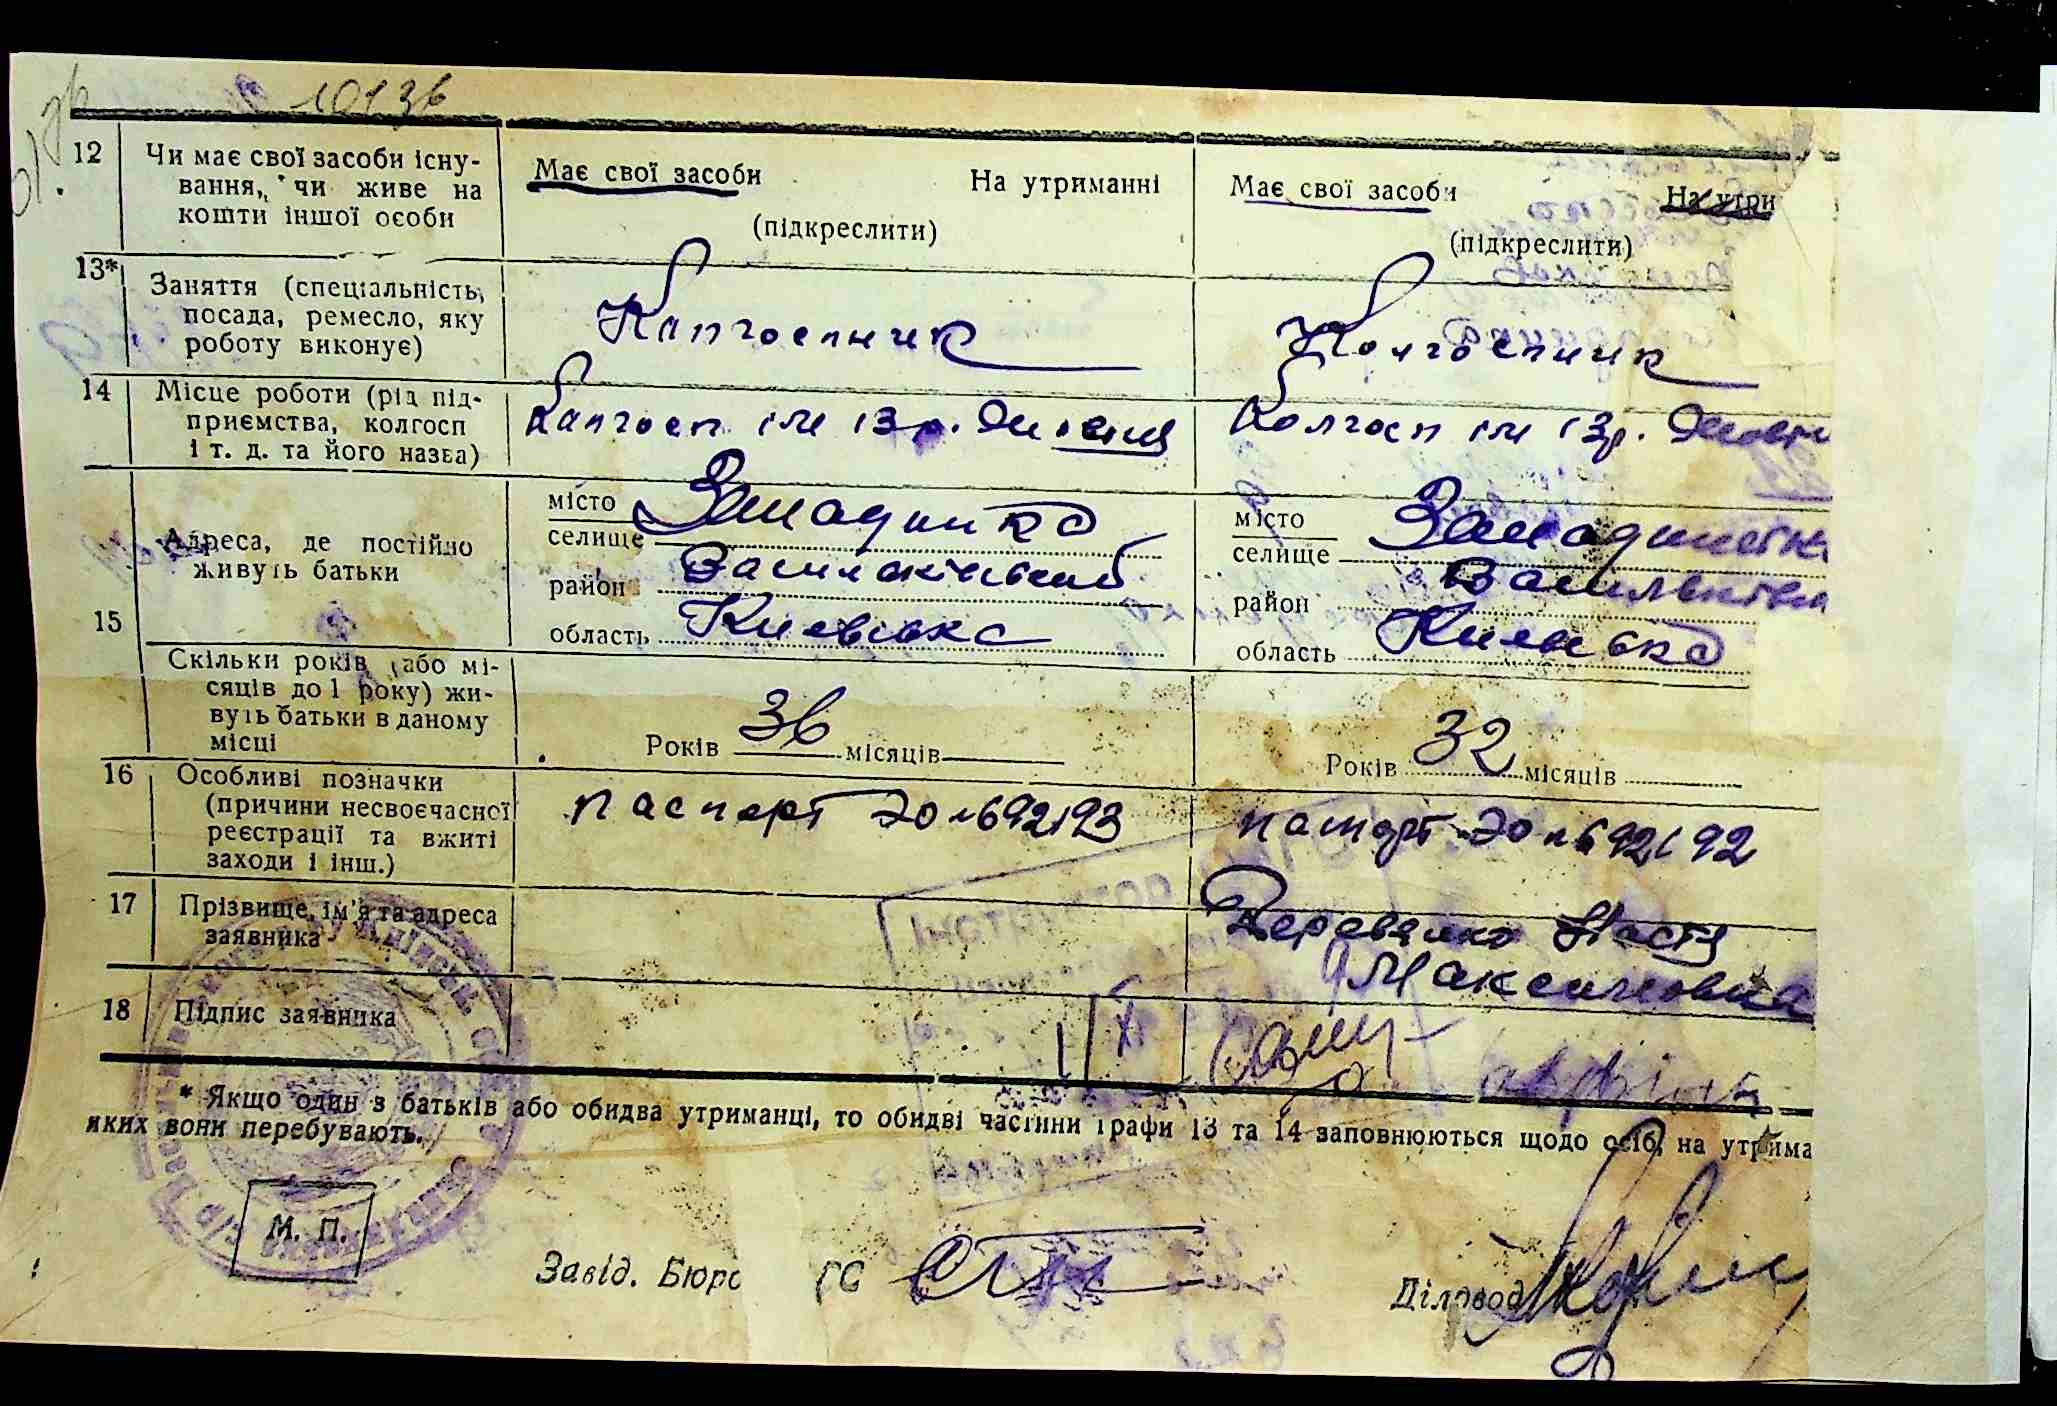 10136
12 Чи має свої засоби існу- Має свої засоби На утриманні Має свої засоби На утри
вання, чи живе на
кошти іншої особи (підкреслити) (підкреслити)
13* Заняття (спеціальність, Капгоспник Колгоспник
посада, ремесло, яку
роботу виконує)
14 Місце роботи (рід під- Капгосп ім 13 р. Колгосп ім 13 р.
приємства, колгосп
і т. д. та його назва)
15 Адреса, де постійно
живуть батьки
місто
селище
район Васильківський
область Київська
місто
селище
район
область Київська
Скільки років (або мі-
сяців до 1 року) жи-
вуть батьки в даному
місці
Років 36 місяців Років 32 місяців
16 Особливі позначки паспорт 692193 паспорт 692192
(причини несвоєчасної
реєстрації та вжиті
заходи і інш.)
17 Прізвище, ім'я та адреса
заявника
Настя
Максимовна
18 Підпис заявника
* Якщо один з батьків або обидва утриманці, то обидві частини графи 13 та 14 заповнюються щодо осіб, на утрима
яких вони перебувають.
М. П.
Завід. Бюро ГС Діловод